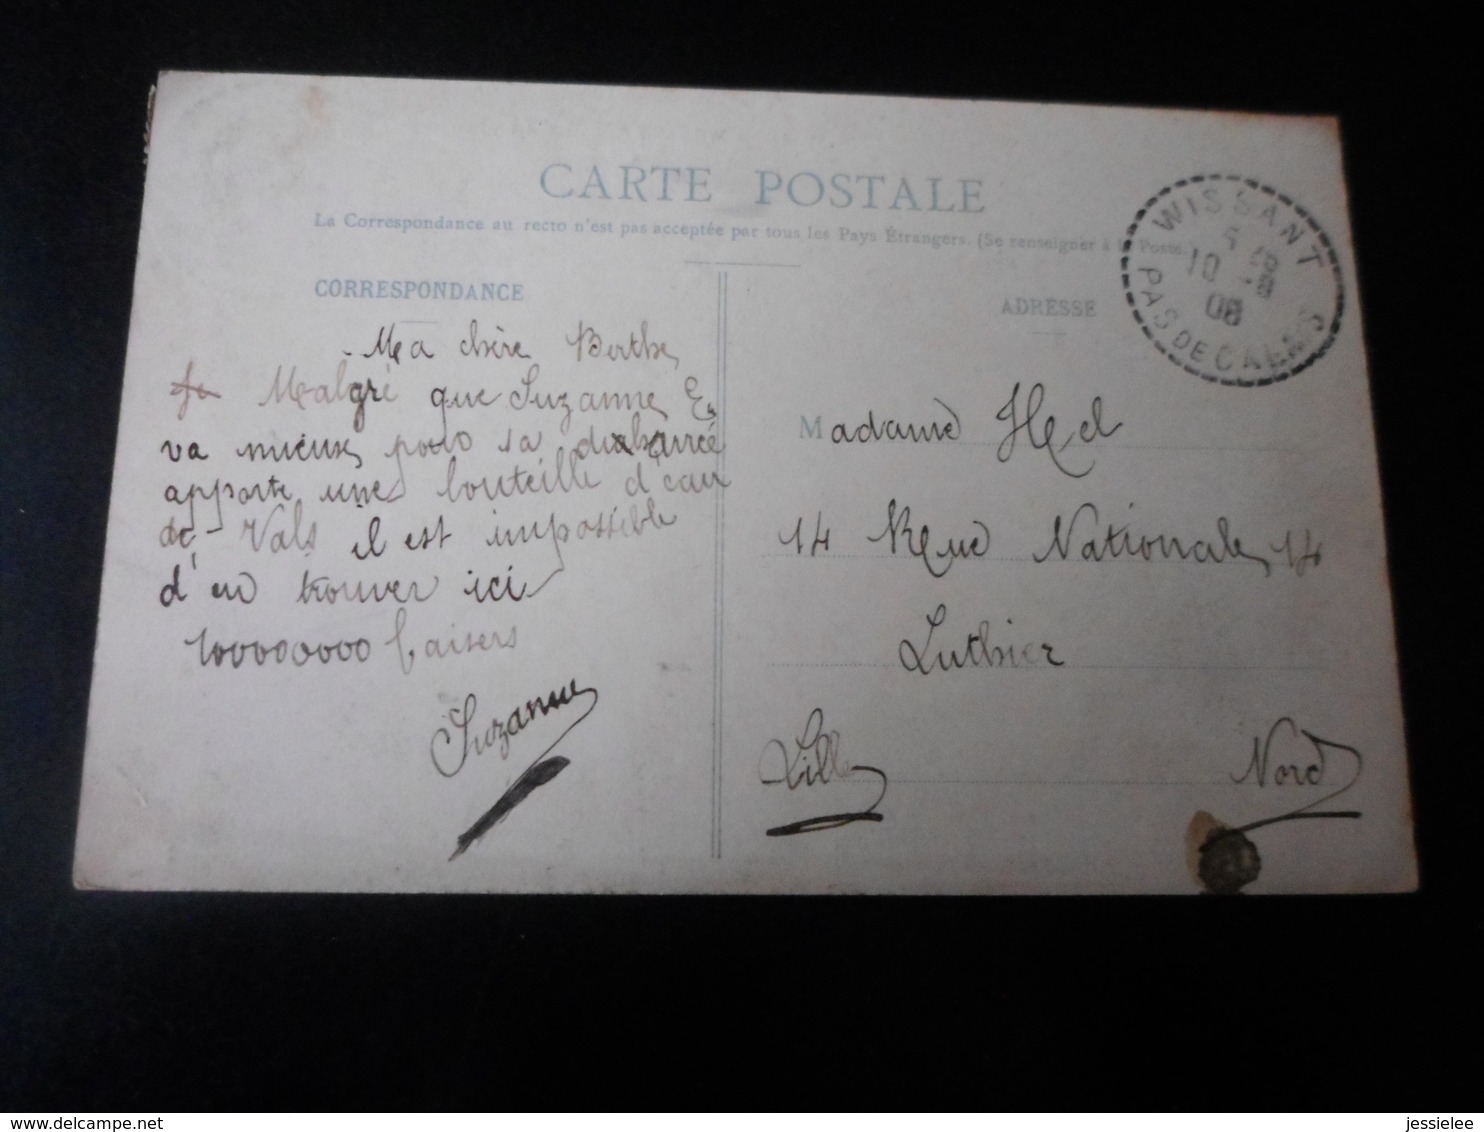 CARTE POSTALE
La Correspondance au recto n'est pas acceptée par tous les Pays Étrangers. (Se renseigner à la Poste.)
CORRESPONDANCE
Ma chère Berthe
Malgré que Suzanne E.
va mieux pour sa
apporte une bouteille d'eau
de Vals il est impossible
d'en trouver ici
1000000000 baisers
Suzanne
ADRESSE
WISSANT
10
08
PAS DE CALAIS
Madame Hel
14 Rue Nationale 14
Luthier
Lille Nord
jessielee